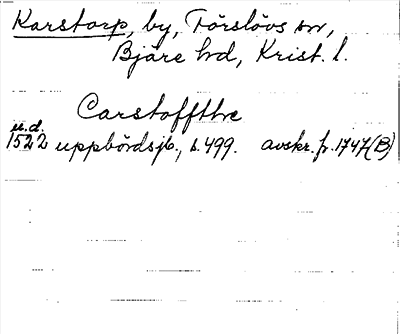 Karstorp, by, Förslövs sn,
Bjäre hd, Krist. l.
Carstoffthe
u.d.
1522 uppbördsjb., s. 499. avskr. fr. 1747(B)